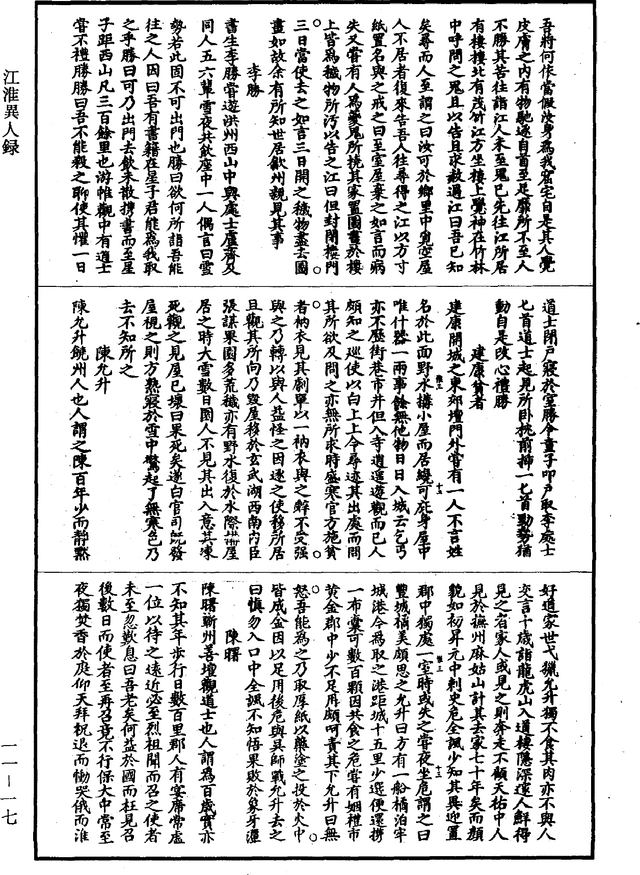 吾將何依當假汝身為我窟宅自是其人覺
皮膚之內有物馳逐自首至足靡所不至人
不勝其苦往詣江人未至鬼已先往江所居
有樓樓北有茂竹江方坐樓上覺神在竹林
中呼問之鬼且以告且求赦過江曰吾已知
矣尋而人至謂之曰汝可於鄉里中覓空屋
人不居者復來告吾人往尋得之江以方寸
紙置名與之戒之曰至室屋棄之如言而病
失又嘗有人為夔鬼所撓其家置圖畫於樓
上皆為穢物所污以告之江曰但封閉樓門
三日當使去之如言三日開之穢物盡去圖
畫如故余有所知世居歙州親見其事
李勝
書生李勝嘗遊洪州西山中與處士盧齊及
同人五六輩雪夜共飲座中一人偶言曰雪
勢若此固不可出門也勝曰欲何所詣吾能
往之人因曰吾有書籍在星子君能為我取
之乎勝曰可乃出門去飲未散攜書而至星
子距西山凡三百餘里也游帷觀中有道士
嘗不禮勝勝曰吾不能殺之聊使其懼一日
道士閉戶寢於室勝令童子叩戶取李處士
匕首道士起見所臥枕前插一匕首動勢猶
動自是改心禮勝
建康貧者
建康關城之東郊壇門外嘗有一人不言姓
名於此面野水構小屋而居纔可庇身屋中
唯什器一兩事餘無他物日日入城云乞丐
亦不歷街巷市井但入寺逍遙遊觀而已人
頗知之巡使以白上上令尋迹其出處而問
其所欲及問之亦無所求時盛寒官方施貧
者衲衣見其劇單以一衲衣與之辭不受強
與之乃轉以與人益怪之因逐之使移所居
且觀其所向乃毀屋移於玄武湖西南內臣
張謀果園多荒穢亦有野水復於水際構屋
居之時大雪數日園人不見其出入意其凍
死觀之見屋已壞曰果死矣遂白官司既發
屋視之則方熟寢於雪中驚起了無寒色乃
去不知所之
陳允升
陳允升饒州人也人謂之陳百年少而靜默
好道家世弋獵允升獨不食其肉亦不與人
交言十歲詣龍虎山入道棲隱深邃人鮮得
見之者家人或見之則奔走不顧天祐中人
見於撫州麻姑山計其去家七十年矣而顏
貌如初昇元中刺史危全諷少知其異迎置
郡中獨處一室時或失之嘗夜坐危謂之曰
豐城橘美頗思之允升曰方有一船橘泊牢
城港今為取之港距城十五里少選便還攜
一布囊可數百顆因共食之危嘗有姻禮市
黃金郡中少不足用頗呵責其下允升曰無
怒吾能為之乃取厚紙以藥塗之投於火中
皆成金因以足用後危與吳師戰允升去之
曰慎勿入口中全諷不知悟果敗於象牙潭
陳曙
陳曙蘄州善壇觀道士也人謂為百歲實亦
不知其年步行日數百里郡人有宴席常虛
一位以待之遠近必至烈祖聞而召之使者
未至忽歎息曰吾老矣何益於國而枉見召
後數日而使者至再召竟不行保大中常至
夜獨焚香於庭仰天拜祝退而慟哭俄而淮
江淮異人録
一一—一七